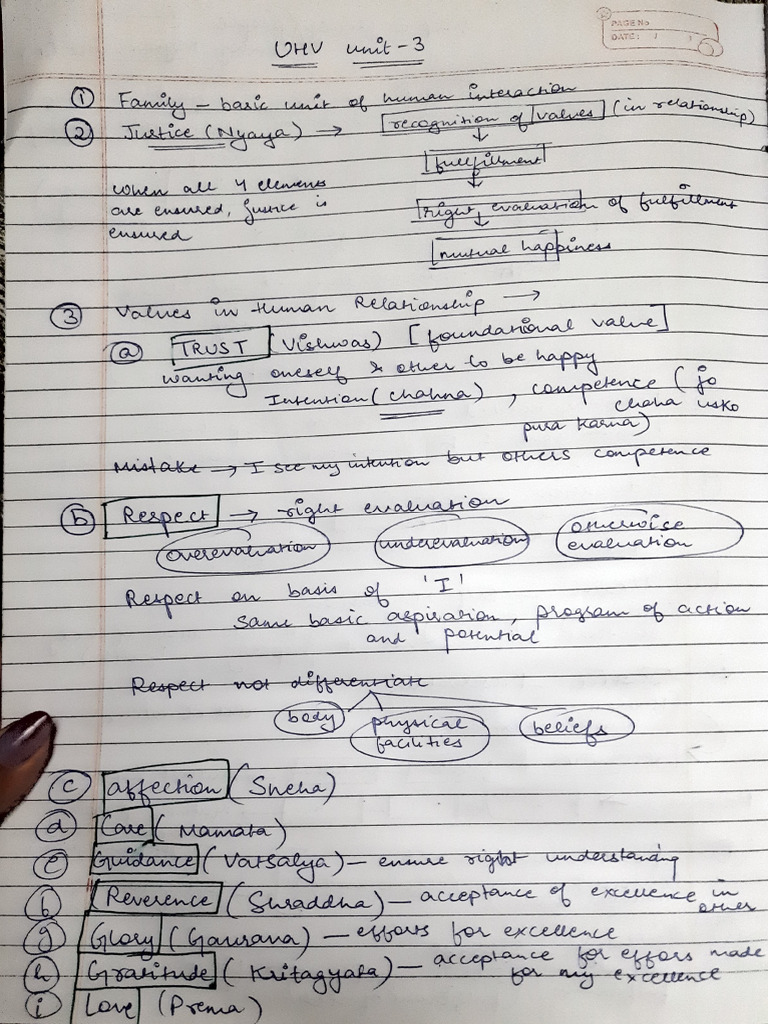 PAGE No
DATE: / /
UHV unit - 3
① Family – basic unit of human interaction
② Justice (Nyaya) → recognition of values (in relationship)
↓
fulfillment
↓
when all 4 elements
are ensured, justice is
ensured
right evaluation of fulfillment
↓
mutual happiness
③ Values in Human Relationship →
ⓐ TRUST (Vishwas) [foundational value]
wanting oneself & other to be happy
Intention (chahna), competence (jo
chaha usko
pura karna)
Mistake → I see my intention but others competence
ⓑ Respect → right evaluation
overevaluation underevaluation otherwise
evaluation
Respect on basis of 'I'
same basic aspiration, program of action
and potential
Respect not differentiate
body physical
facilities beliefs
ⓒ affection (Sneha)
ⓓ Care (Mamata)
ⓔ Guidance (Vatsalya) – ensure right understanding
ⓕ Reverence (Shraddha) – acceptance of excellence in
other
ⓖ Glory (Gaurava) – efforts for excellence
ⓗ Gratitude (Kritagyata) – acceptance for efforts made
for my excellence
ⓘ Love (Prema)